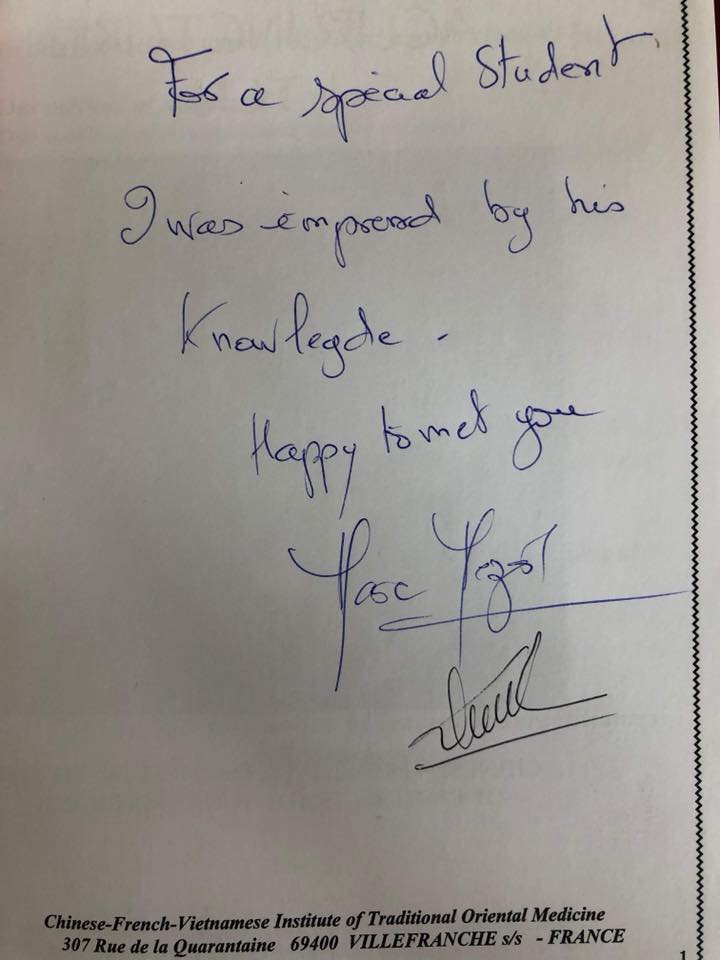 For a special Student
I was impressed by his
Knowlegde -
Happy to met you
Marc
Chinese-French-Vietnamese Institute of Traditional Oriental Medicine
307 Rue de la Quarantaine 69400 VILLEFRANCHE s/s - FRANCE
1